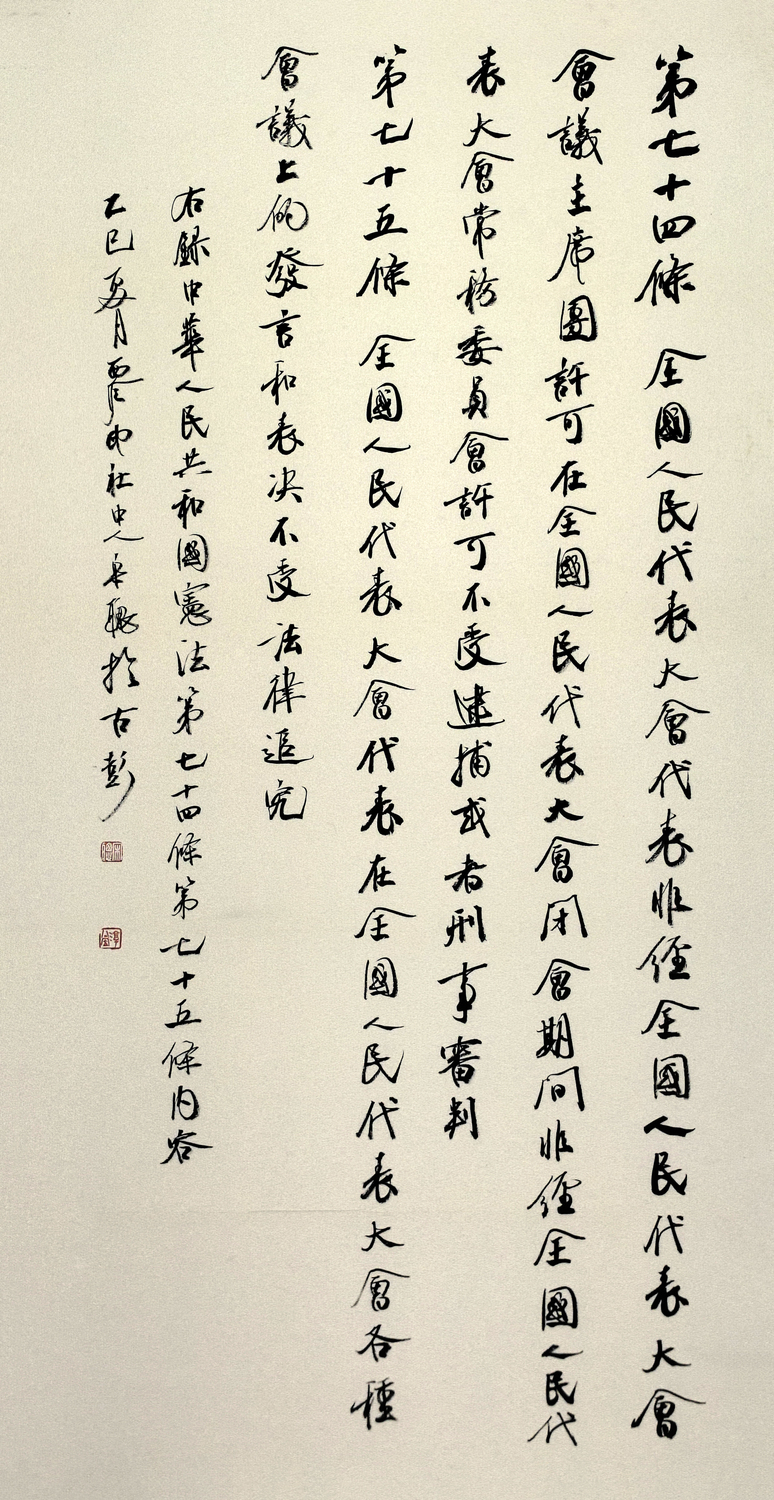 第七十四條 全國人民代表大會代表非經全國人民代表大會
會議主席團許可在全國人民代表大會閉會期间非經全國人民代
表大會常務委員會許可不受逮捕或者刑事審判
第七十五條 全國人民代表大會代表在全國人民代表大會各種
會議上的發言和表决不受法律追究
右録中華人民共和國憲法第七十四條第七十五條内容
乙巳夏月西泠印社中人 於古彭